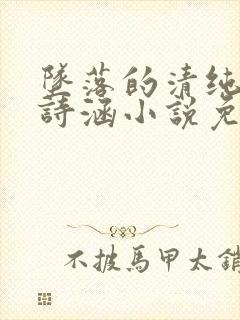 墜落的清純
詩涵小說免
不披馬甲太銷